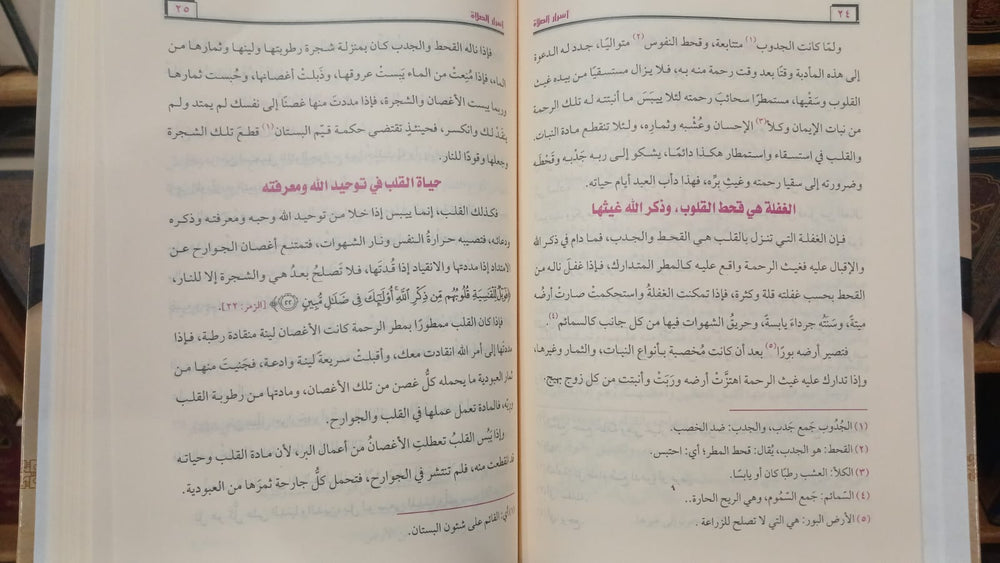 ٢٤
أسرار الصلاة
ولمّا كانت الجدوب(١) متتابعة، وقحط النفوس(٢) متواليًا، جدد له الدعوة
إلى هذه المأدبة وقتًا بعد وقت رحمة منه به، فلا يزال مستسقيًا من بيده غيث
القلوب وسَقْيها، مستمطرًا سحائبَ رحمته لئلا ييبَسَ ما أنبتته له تلك الرحمة
من نبات الإيمان وكلأ(٣) الإحسان وعُشْبه وثماره، ولئلا تنقطع مادة النبات.
والقلب في استسقاء واستمطار هكذا دائمًا، يشكو إلى ربه جَدْبه وقَحْطَه
وضرورته إلى سقيا رحمته وغيثِ برِّه، فهذا دأب العبد أيام حياته.
الغفلة هي قحط القلوب، وذكر الله غيثها
فإن الغفلة التي تنزل بالقلب هي القحط والجدب، فما دام في ذكر الله
والإقبال عليه فغيث الرحمة واقع عليه كالمطر المتدارك، فإذا غفلَ ناله من
القحط بحسب غفلته قلة وكثرة، فإذا تمكنت الغفلةُ واستحكمتْ صارتْ أرضُه
ميتةً، وسَنَتُه جرداءَ يابسةً، وحريقُ الشهوات فيها من كل جانب كالسمائم(٤).
فتصير أرضه بورًا(٥) بعد أن كانت مُخصبة بأنواع النبات، والثمار وغيرها،
وإذا تدارك عليه غيث الرحمة اهتزَّتْ أرضه ورَبَتْ وأنبتت من كل زوج بهيج.
(١) الجُدُوب جَمع جَدب، والجدب: ضد الخصب.
(٢) القحط: هو الجدب، يُقال: قحط المطر؛ أي: احتبس.
(٣) الكلأ: العشب رطبًا كان أو يابسًا.
(٤) السّمائم: جَمع السَّمُوم، وهي الريح الحارة..
(٥) الأرض البور: هي التي لا تصلح للزراعة.
أسرار الصلاة
٢٥
فإذا ناله القحط والجدب كان بمنزلة شجرة رطوبتها ولينها وثمارها من
الماء، فإذا مُنِعتْ من الماء يَبستْ عروقها، وذَبلتْ أغصانها، وحُبست ثمارها
وربما يبست الأغصان والشجرة، فإذا مددتَ منها غصنًا إلى نفسك لم يمتد ولم
ينقَدْ لك وانكسر، فحينئذٍ تقتضي حكمة قيّم البستان(١) قطعَ تلك الشجرة
وجعلها وقودًا للنار.
حياة القلب في توحيد الله ومعرفته
فكذلك القلب، إنما ييبس إذا خلا من توحيد الله وحبه ومعرفته وذكره
ودعائه، فتصيبه حرارةُ النفس ونار الشهوات، فتمتنع أغصان الجوارح عن
الامتداد إذا مددتها والانقياد إذا قُدتَها، فلا تَصلحُ بعدُ هي والشجرة إلا للنار،
﴿فَوَيْلٌ لِّلْقَٰسِيَةِ قُلُوبُهُم مِّن ذِكْرِ ٱللَّهِ أُوْلَٰٓئِكَ فِى ضَلَٰلٍ مُّبِينٍ ٢٢﴾ [الزمر: ٢٢].
فإذا كان القلب ممطورًا بمطر الرحمة كانت الأغصان لينة منقادة رطبة، فإذا
مددتها إلى أمر الله انقادت معك، وأقبلتْ سريعةً لينة وادعة، فجَنيتَ منها من
ثمار العبودية ما يحمله كلُّ غصن من تلك الأغصان، ومادتها من رطوبة القلب
وريّه، فالمادة تعمل عملها في القلب والجوارح.
وإذا يَبُسَ القلبُ تعطلتِ الأغصانُ من أعمال البر، لأن مادة القلب وحياته
قد انقطعت منه، فلم تنتشر في الجوارح، فتحمل كلُّ جارحة ثمرَها من العبودية.
(١) أي: القائم على شئون البستان.